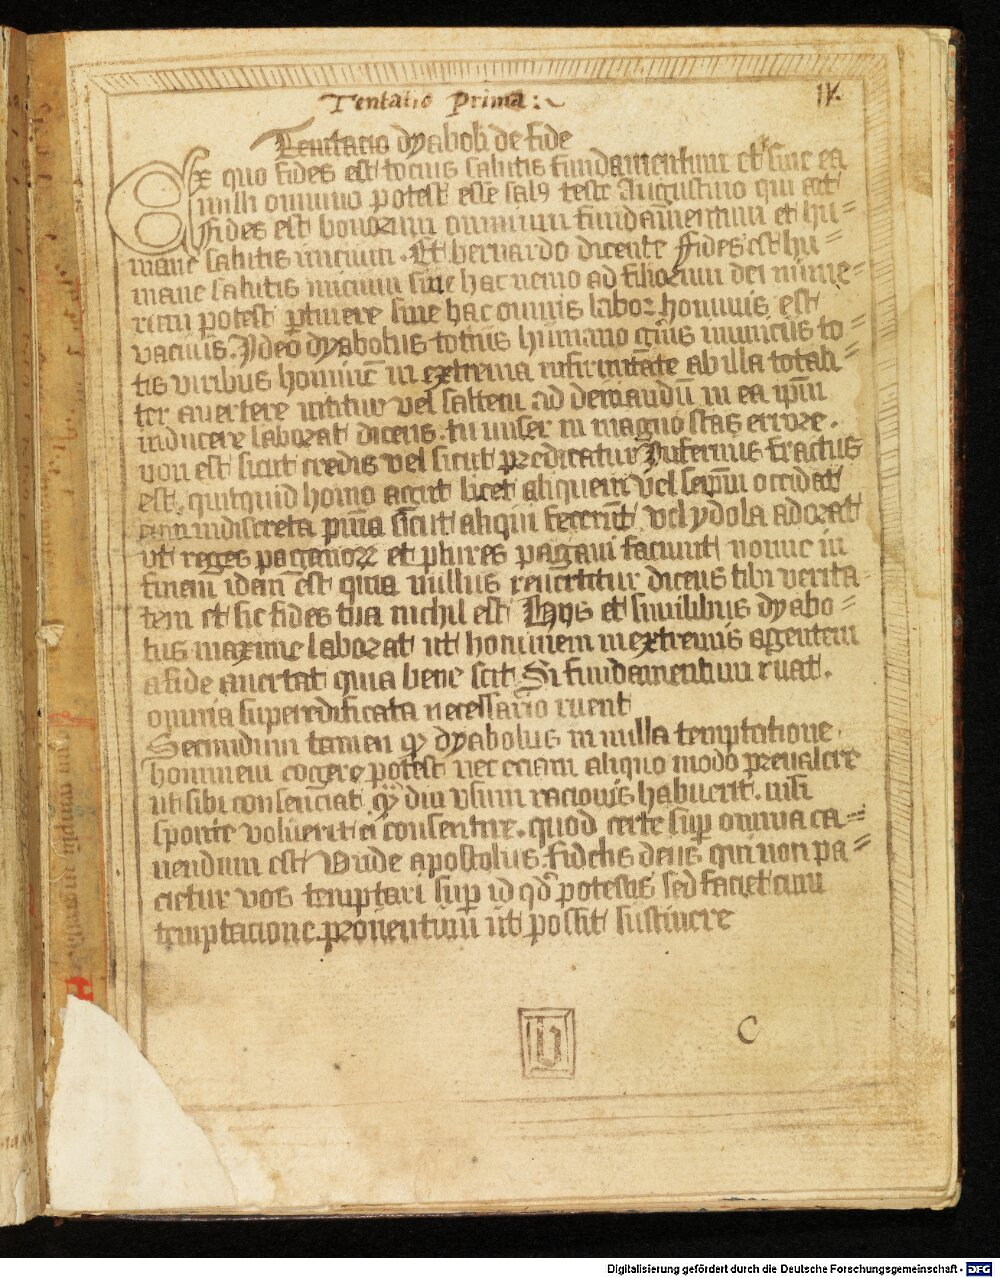 Tentatio Prima:
IV.
Temtacio dyaboli de fide
Ex quo fides est tocius salutis fundamentum et sine ea
nulli omnino potest esse salꝰ teste Augustino qui ait
Fides est bonorum omnium fundamentum et hu=
mane salutis inicium. Et bernardo dicente Fides est hu=
mane salutis inicium sine hac nemo ad filiorum dei nume=
rum potest ꝑtinere sine hac omnis labor hominis est
vacuus. Ideo dyabolus totius humano gn̄is inimicus to=
tis viribus hominē in extrema infirmitate ab illa totali=
ter avertere nititur vel saltem ad deviandū in ea ip̄m
inducere laborat dicens. tu miser in magno stas errore.
non est sicut credis vel sicut predicatur Infernus fractus
est. quitquid homo agit licet aliquem vel seip̄m occidat
cum indiscreta pn̄ia sicut aliqui fecerūt vel ydola adorat
ut reges paganoꝝ et plures pagani faciunt nonne in
finem idem est quia nullus revertitur dicens tibi verita=
tem et sic fides tua nichil est Hijs et similibus dyabo=
lus maxime laborat ut hominem in extremis agentem
a fide avertat quia bene scit Si fundamentum ruat.
omnia superedificata necessario ruent
Secundum tamen qꝫ dyabolus in nulla temptatione
hominem cogere potest nec eciam aliquo modo prevalere
ut sibi consenciat qꝫ diu usum racionis habuerit. nisi
sponte voluerit ei consentire. quod certe suꝑ omnia ca=
vendum est Unde apostolus. Fidelis deus qui non pa=
cietur vos temptari suꝑ id qd̓ potestis sed faciet cum
temptacione proventum ut possit sustinere
b
C
Digitalisierung gefördert durch die Deutsche Forschungsgemeinschaft - DFG